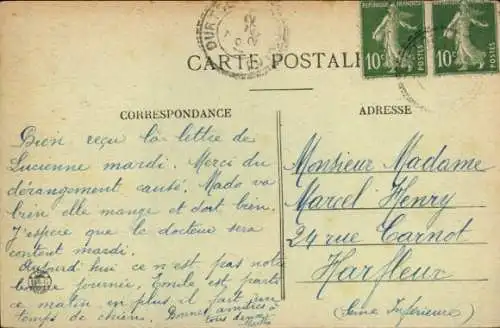 CARTE POSTALE
CORRESPONDANCE
Bien reçu la lettre de
Lucienne mardi. Merci du
dérangement causé. Mado va
bien elle mange et dort bien.
J'espère que le docteur sera
content mardi.
Aujourd'hui ce n'est pas notre
bonne journée. Emile est parti
ce matin en plus il fait un
temps de chien. Bonnes amitiés à
tous deux
ADRESSE
Monsieur Madame
Marcel Henry
24 rue Carnot
Harfleur
(Seine Inférieure)
10c POSTES
10c POSTES